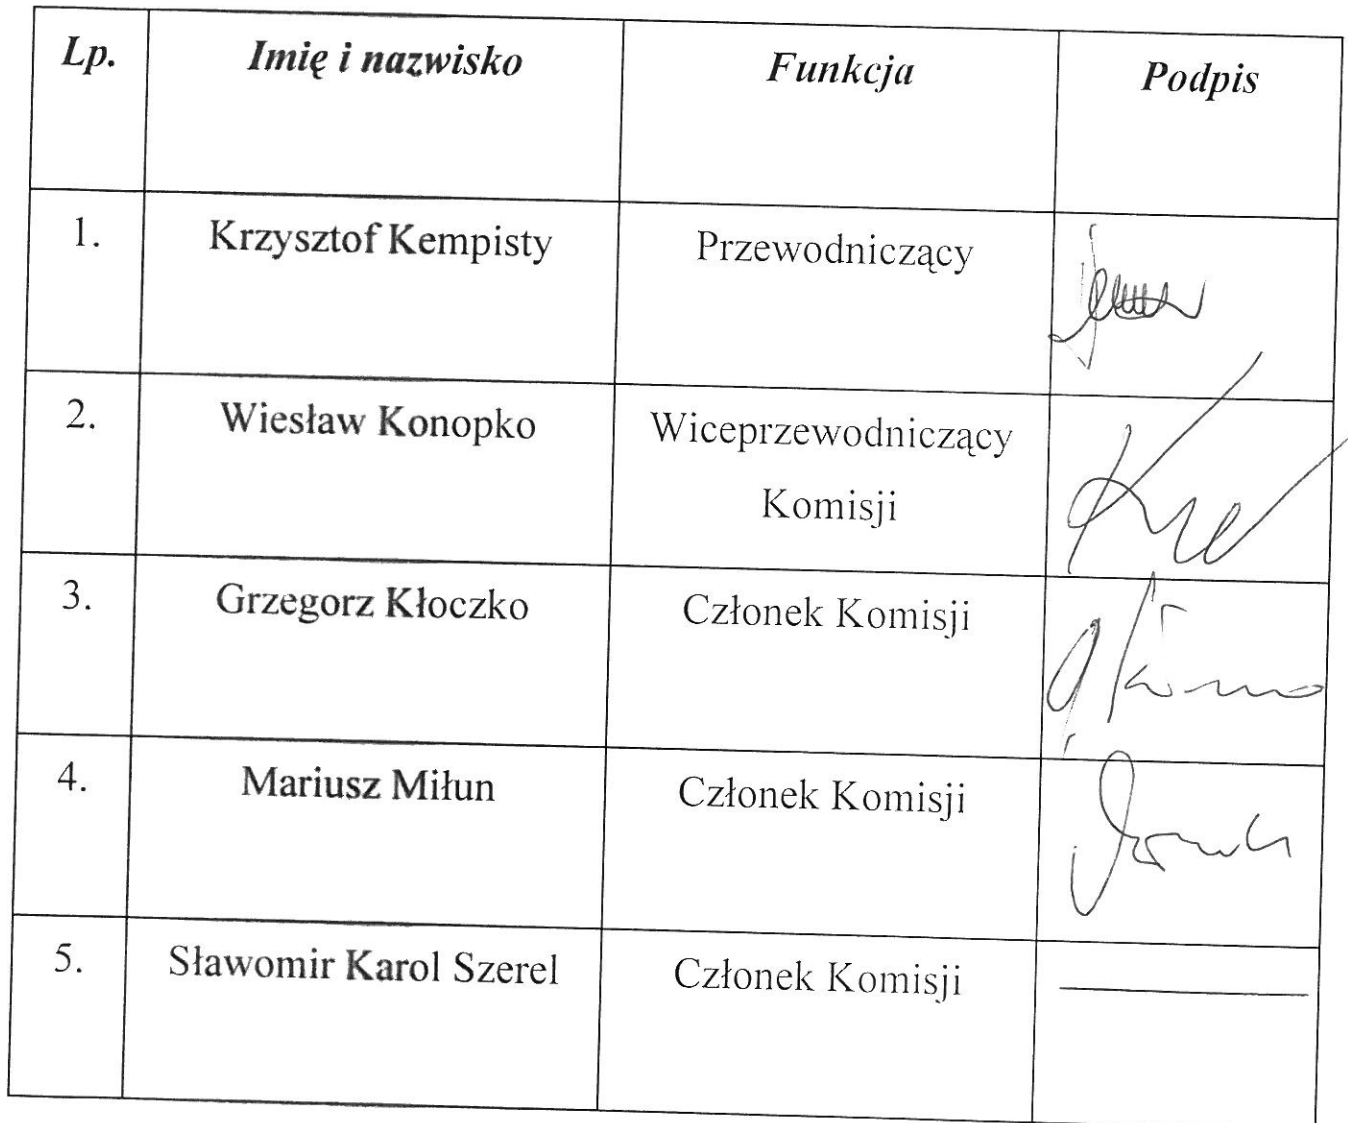 Lp. Imię i nazwisko Funkcja Podpis
1. Krzysztof Kempisty Przewodniczący
2. Wiesław Konopko Wiceprzewodniczący
Komisji
3. Grzegorz Kłoczko Członek Komisji
4. Mariusz Miłun Członek Komisji
5. Sławomir Karol Szerel Członek Komisji